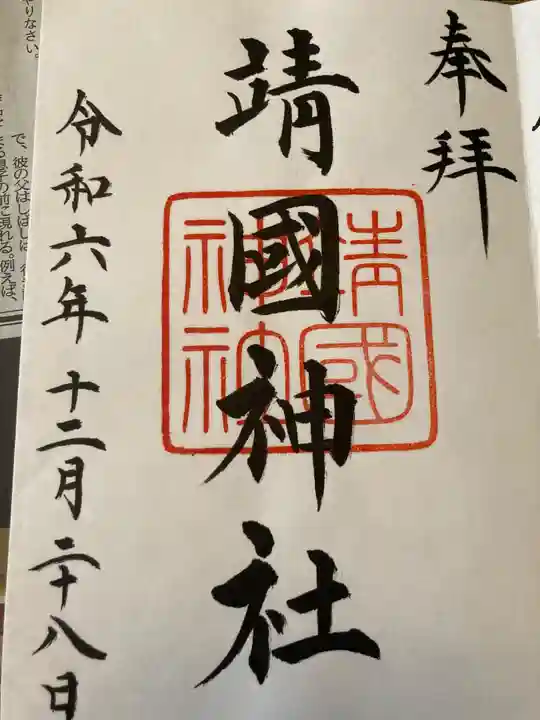 奉拝
靖國神社
令和六年十二月二十八日
やりなさい。
で、彼の父はしばしば
息子の前に現れる。例えば、